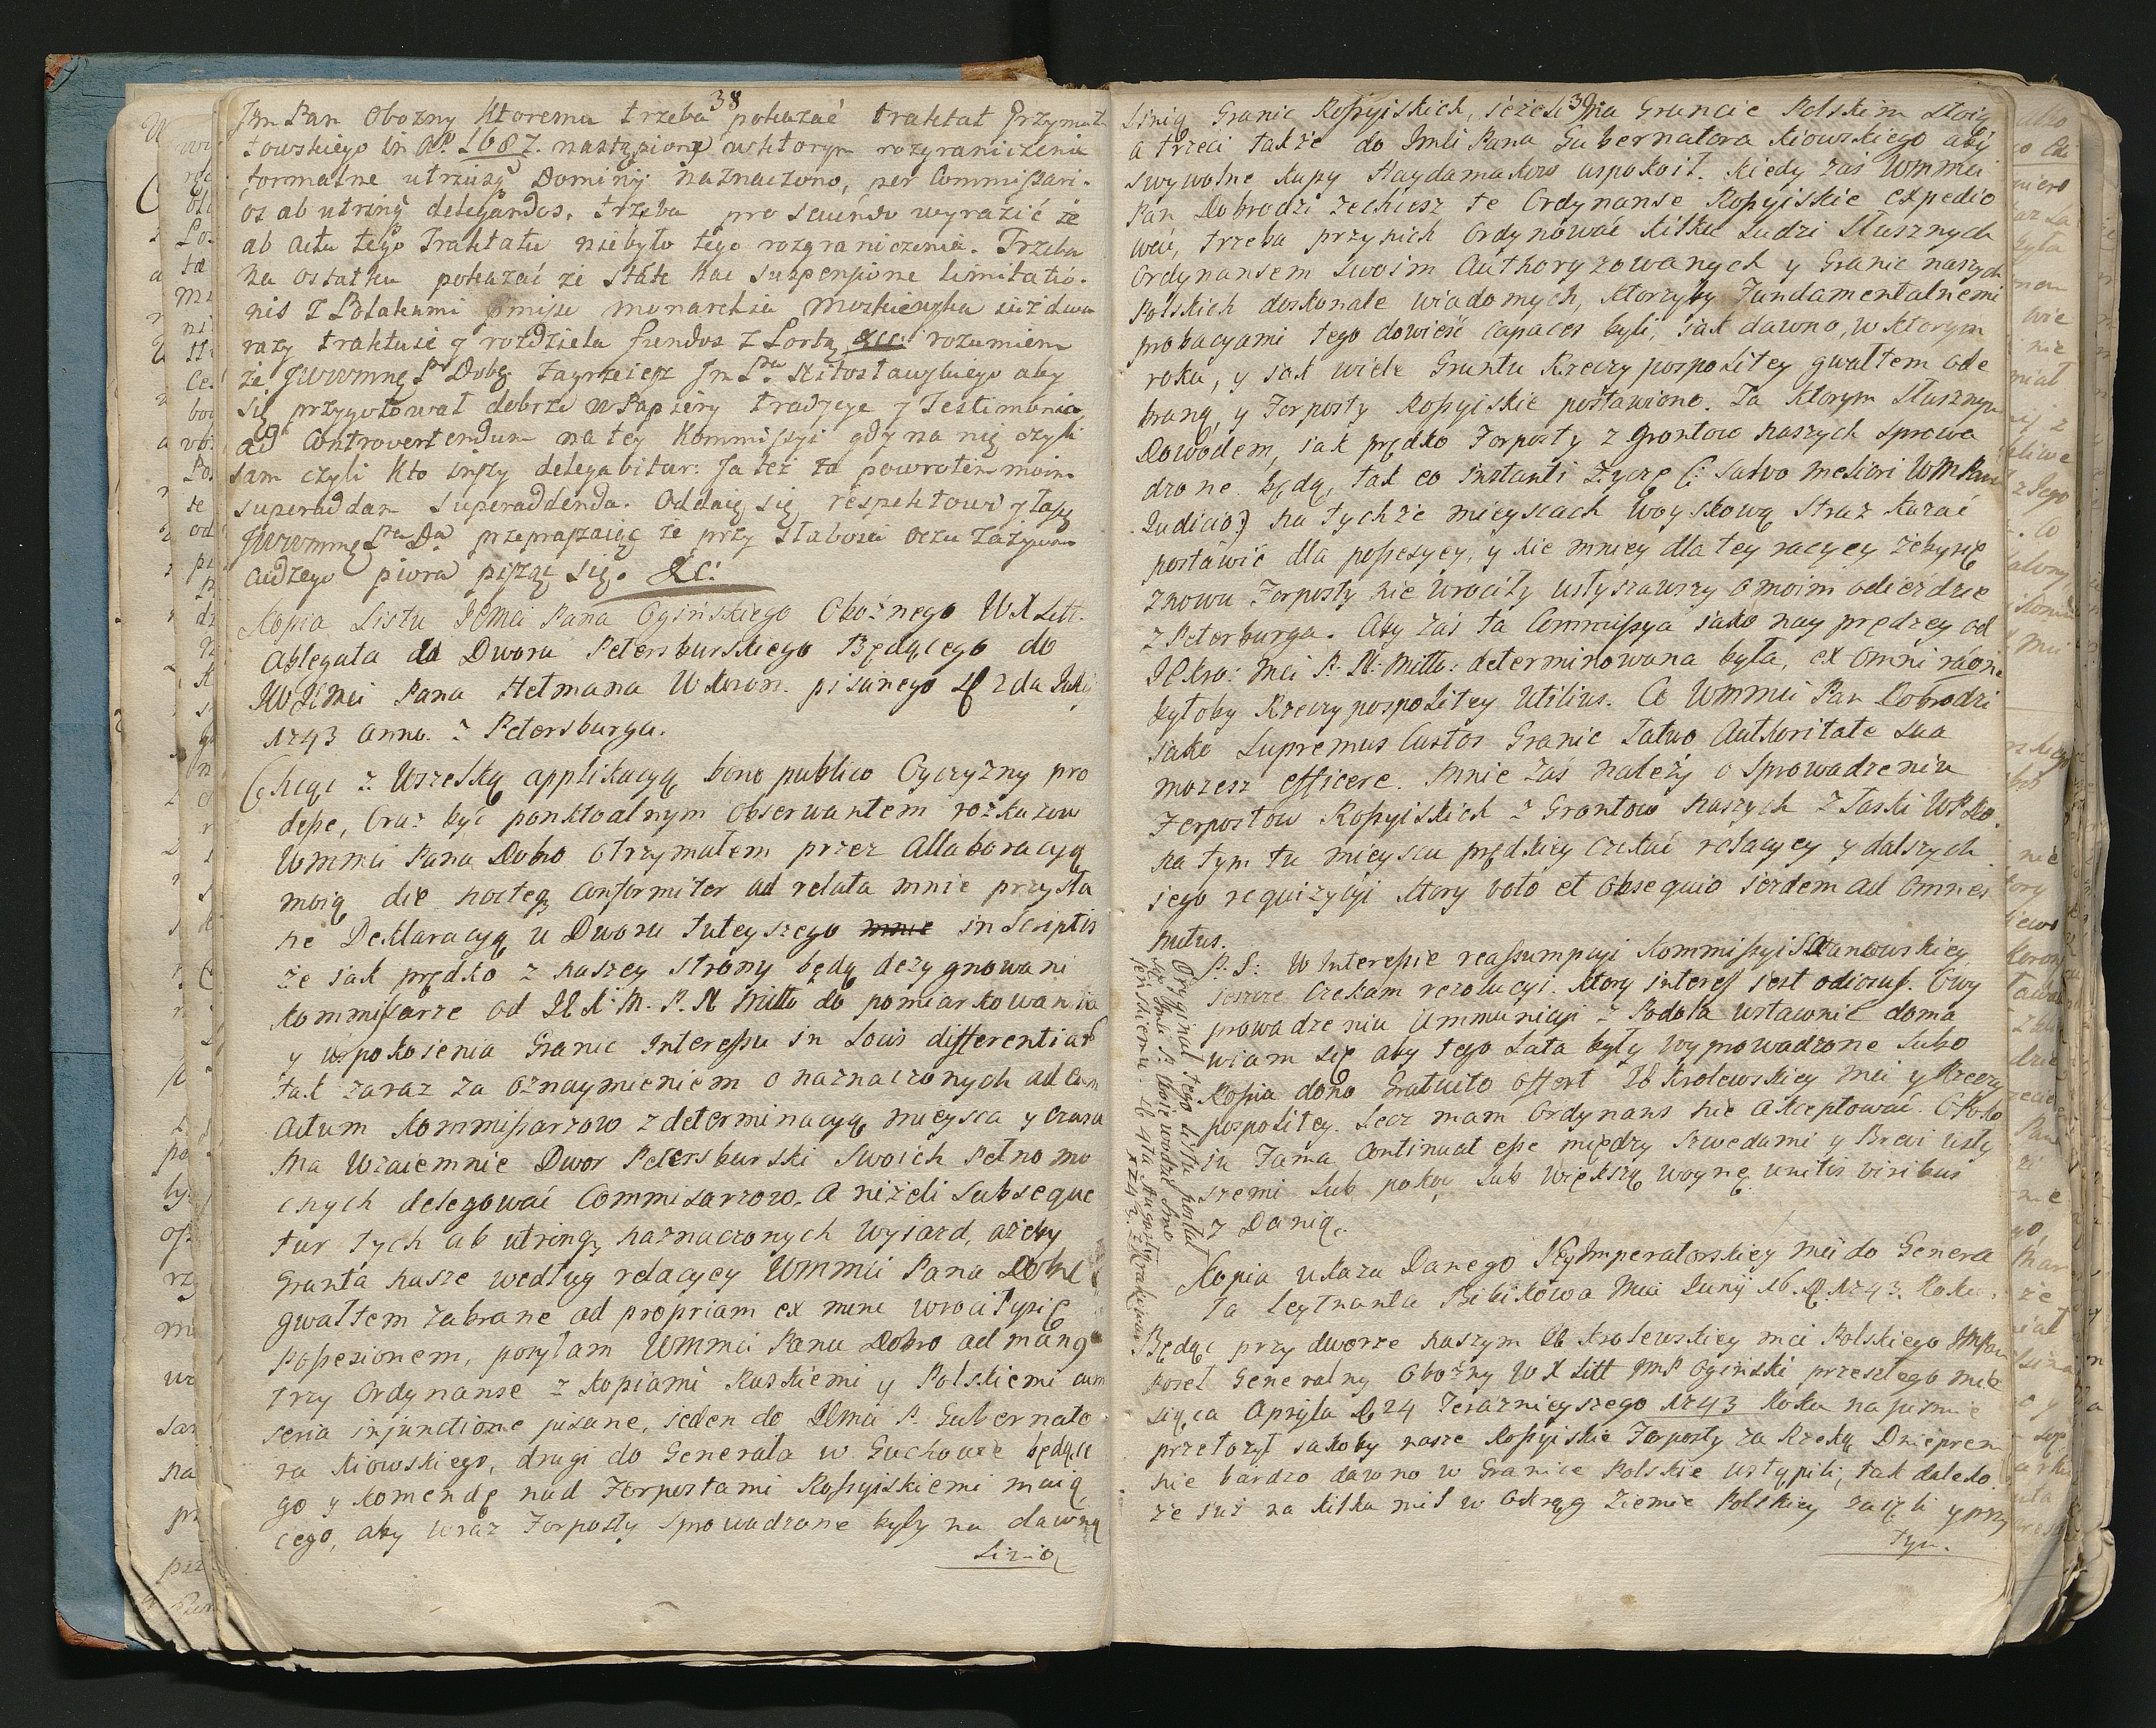 38
Jm Pan Obozny ktoremu trzeba pokazać traktat Grzymuł
towskiego in Ao. 1687. nastąpiony wktorym rozgraniczenie
formalne utriusq Dominij naznaczono, per Commissari-
os ab utrinq delegandos. trzeba pro secundo wyrazić że
ab actu tego Traktatu niebyło tego rozgraniczenia. Trzeba
na ostatku pokazać że stante hac suspensione limitatio-
nis z Polakami monarchia Moskiewska już dwa
razy traktuie y rozdziela fundos z Portą &c: rozumiem
że JWWmmę Pn Dobę zagrzeiesz Jm Pna Miłosławskiego aby
się przygotował dobrze w Papiery tradycye y Testimonia,
ad Controvertendum na tey Kommissyi gdy na nię czyli
sam czyli kto inszy delegabitur: Ja też za powrotem moim
superaddam superaddenda. Oddaię się respektowi y łasce
JWWmmę Pna Da przepraszaiąc że przy słabosci oczu zażywam
cudzego piora pisząc się. &c:
Kopia Listu JEMci Pana Ogińskiego Oboźnego WXLitt.
Ablegata do Dworu Petersburskiego Będącego do
JWJEMci Pana Hetmana WKoron. pisanego d 2da Julij
1743 Anno. z Petersburga.
Chcąc z Wszelką applikacyą bono publico Oyczyzny pro
desse, Oraz być ponktoalnym Obserwantem rozkazow
Wmmci Pana Dobo Otrzymałem przez Allaboracyą
moią die nocteq Conformiter ad relata mnie przysła
ne Deklaracyą u Dworu tuteyszego mnie in Scriptis
że jak prędko z naszey strony będą dezygnowani
Kommissarze od JKM. P. N Miłło do pomiarkowania
y uspokoienia Granic Interessu in Locis differentiar
tak zaraz za Oznaymieniem o naznaczonych ad Com
Actum Kommissarzow z determinacyą mieysca y Czasu
Ma Wzaiemnie Dwor Petersburski Swoich Pełnomo
cnych delegować Commisarzow. A niżeli Subseque
tur tych ab utrinq naznaczonych Wyiazd, ażeby
Gronta nasze według relacyey Wmmci Pana Dobe
gwałtem zabrane ad propriam ex nunc wrociłysię
Possesionem, posyłam Wmmci Panu Dobro ad manq
trzy Ordynanse z Kopiami Ruskiemi y Polskiemi cum
seria injunctione pisane, jeden do JEMci P. Gubernato
ra Kiowskiego, drugi do Generała w Głuchowie będące
go y Komendę nad Forpostami Rossyiskiemi maią
cego, aby wraz Forposty Sprowadzone były na dawną
Linią
39
Linią Granic Rossyiskich, jeżeli na Gruncie Polskim stoią
a trzeci także do Jmci Pana Gubernatora Kiowskiego aby
swywolne kupy Haydamakow uspokoił. Kiedy zaś Wmmci
Pan Dobrodzi zechcesz te Ordynanse Rossyiskie expedio
wać, trzeba przynich Ordynować kilku Ludzi Słusznych
Ordynansem Swoim Authoryzowanych y Granic naszych
Polskich doskonale wiadomych, ktorzyby Fundamentalnemi
probacyami tego dowieść capaces byli, jak dawno, w ktorym
roku, y jak wiele Gruntu Rzeczypospolitey gwałtem ode
braną, y Forposty Rossyiskie postawione. Za ktorym Słusznym
Dowodem, jak prędko Forposty z grontow naszych Sprowa
dzone będą, tak eo instanti życzę (: Salvo meliori WmPana
Judicio :) na tychże mieyscach Woyskową Straz kazać
postawić dla possesyey, y nie mniey dla tey racyey żebysię
znowu Forposty nie wrociły usłyszawszy o moim odieżdzie
z Peterburga. Aby zaś ta Commissya jako nayprędzey od
JKro: Mci P. N: Miłło: determinowana była, ex omni ratione
byłoby Rzeczypospolitey Utilius. Co Wmmci Pan Dobrodzi
jako Supremus Custos Granic Łatwo Authoritate sua
możesz efficere. Mnie zaś należy o Sprowadzeniu
Forpostow Rossyiskich z Grontow naszych z łaski WPDo.
na tym tu mieyscu prędkiey czekać relacyey y dalszych
jego requizycyi ktory voto et Obsequio jezdem ad Omnes
nutus.
P. S: W Interessie reassumpcyi Kommissyi Szaranowskiey
jeszcze Czekam rezolucyi. Ktory interess jest odiosus. O wy
prowadzeniu Ammunicyi z Podola ustawnie doma
wiam się aby tego Lata były wyprowadzone Lubo
Rossia dono Gratuito offert JKrolewskiey Mci y Rzeczy
pospolitey. Lecz mam Ordynans nie Akceptować. O Poko
iu Fama Continuat esse między Szwedami y Brevi usły
szemi Lub pokoy Lub większą woynę unitis viribus
z Danią.
Oryginał tego Listu posłał
się Jmci P. Woiewodzie Smo
leńskiemu d 4ta Aug.
Kopia ukazu Danego Jey Imperatorskiey Mci do Genera
ła Leytnanta Bibikowa Mca Junij 16. d. 1743. Roku.
Będąc przy dworze naszym JKrolewskiey mci Polskiego JmPan
Poseł Generalny Oboźny W X Litt JMP Ogiński przeszłego mie
siąca Apryla d 24 Terazneyszego 1743 Roku na pismie
przełozył jakoby nasze Rossyiskie Forposty za Rzeką Dnieprem
nie bardzo dawno w Granice Polskie wstąpili, tak daleko
że juz na kilka mil w Okrąg Ziemie Polskiey zaięli y przy
tym.